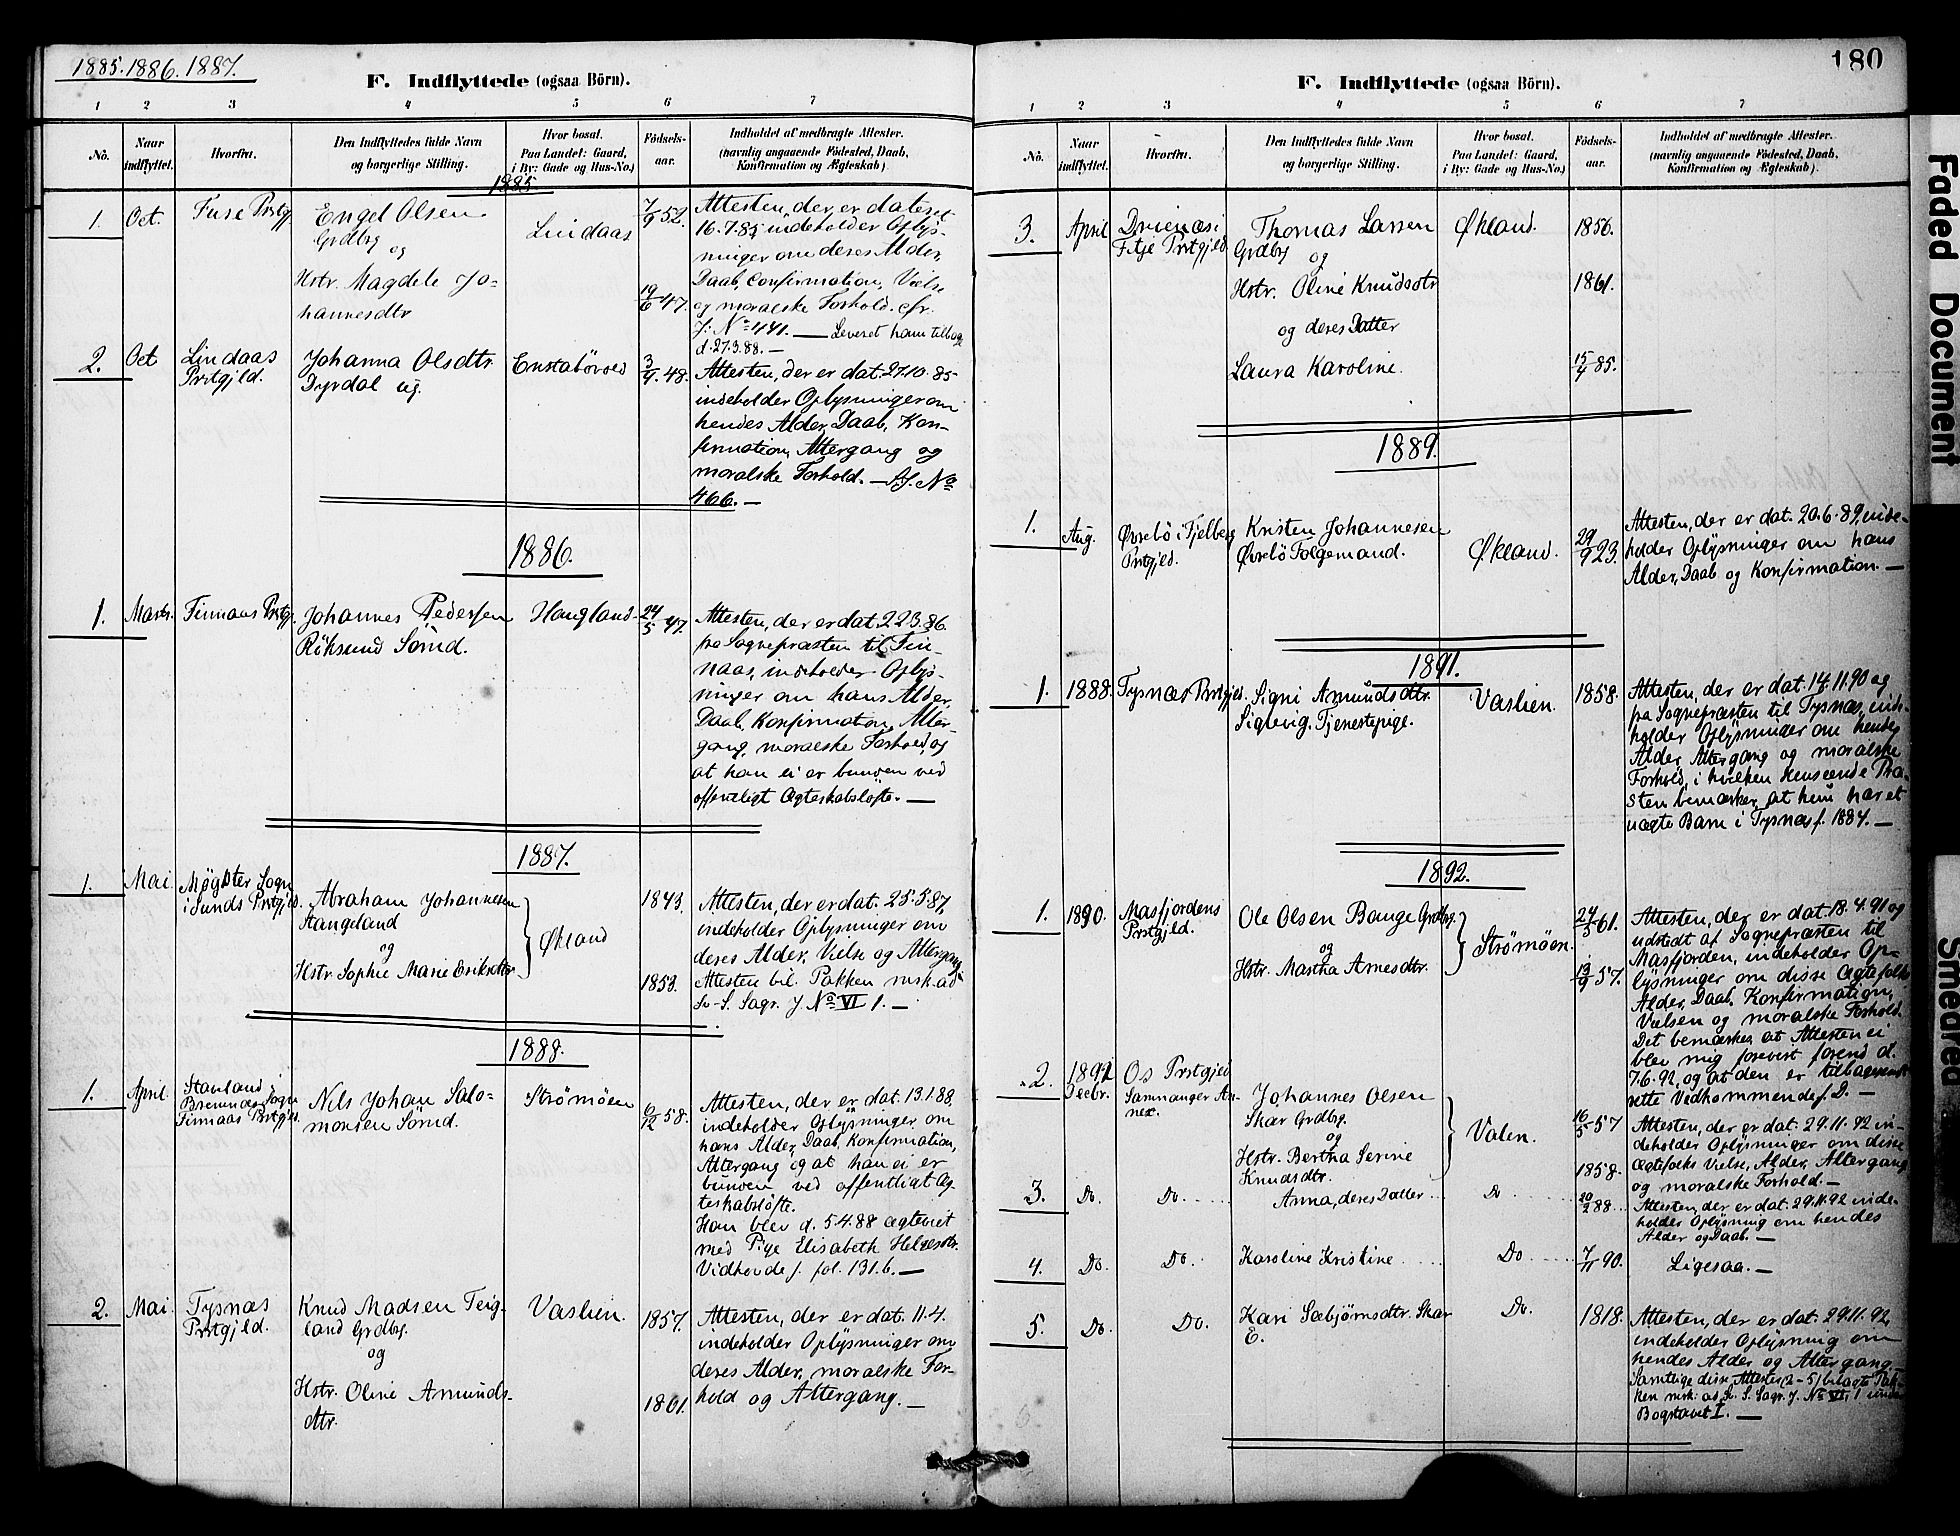 1885. 1886. 1887.
F. Indflyttede (ogsaa Börn).
1 2 3 4 5 6 7
No.
Naar indflyttet.
Hvorfra.
Den Indflyttedes fulde Navn
og borgerlige Stilling.
Hvor bosat.
Paa Landet: Gaard,
i By: Gade og Hus-No.)
Födsels-
aar.
Indholdet af medbragte Attester.
(navnlig angaaende Födested, Daab,
Konfirmation og Ægteskab)
1885
1. Oct. Fuse Prstgj. Engel Olsen
Grdbg
og
Hstr. Magdele Jo-
hannesdtr
Lindaas
7/9 52.
19/6 47.
Attesten, der er dateret
16.7.85 indeholder Oplys-
ninger om deres Alder,
Daab, Confirmation, Vielse
og moralske Forhold. cfr.
J. No 441. — Leveret ham tilbage
d. 27.3.88. —
2. Oct Lindaas
Prstgjld.
Johanna Olsdtr.
Dyrdal ug.
3/4 48.
Attesten, der er dat. 27.10.85
indeholder Oplysninger om
hendes Alder, Daab, Kon-
firmation, Altergang og
moralske Forhold. — No
466. —
1886.
1. Marts. Finnaas Prstgj. Johannes Pedersen
Röksund Sömd.
Haugland.
24/5 47.
Attesten, der er dat. 22.3.86.
fra Sognepræsten til Fin-
naas, indeholder Oplys-
ninger om hans Alder,
Daab, Konfirmation, Alter-
gang, moralske Forhold, og
at han ei er bunden ved
offentligt Ægteskabslöfte. —
1887.
1. Mai. Møgster Sogn
i Sunds Prstgjld.
Abraham Johannesen
Stangeland
og
Hstr. Sophie Marie Eriksdtr
Økland
1843.
1853.
Attesten, der er dat. 25.5.87,
indeholder Oplysninger om
deres Alder, Vielse og Altergang
Attesten bil. Pakken mrk. ad
Sv-S. Sagr. J. No VI 1. —
1888.
1. April. Stanland i
Bremnes Sogn
Finnaas Prstgjld.
Nils Johan Salo-
monsen Sömd.
Strømøen
6/12 58.
Attesten, der er dat. 13.1.88
indeholder Oplysninger om
hans Alder, Daab, Konfirmation,
Altergang og at han ei er
bunden ved offentligt Æg-
teskabslöfte.
Han blev d. 5.4.88 ægteviet
med Pige Elisabeth Helgesdtr.
Vidhovde j. fol. 131.6. —
2. Mai. Tysnæs
Prstgjld.
Knud Madsen Teig-
land Grdbg.
og
Hstr. Oline Amunds-
dtr.
Vaslien.
1857.
1861.
Attesten, der er dat. 11.4.
indeholder Oplysninger om
deres Alder, moralske For-
hold og Altergang. —
180
F. Indflyttede (ogsaa Börn).
1 2 3 4 5 6 7
No.
Naar
indflyttet.
Hvorfra.
Den Indflyttedes fulde Navn
og borgerlige Stilling.
Hvor bosat.
Paa Landet: Gaard,
i By: Gade og Hus-No.)
Födsels-
aar.
Indholdet af medbragte Attester.
(navnlig angaaende Födested, Daab,
Konfirmation og Ægteskab).
3. April Drienæs i
Fitje Prstgjeld.
Thomas Larsen
Grdbg
og
Hstr. Oline Knudsdtr
og deres Datter
Laura Karoline.
Økland.
1856.
1861.
15/4 85.
1889.
1. Aug. Øvrebö i Fjelberg
Prstgjld.
Kristen Johannesen
Øvrebö Folgemand.
Økland.
29/9 23.
Attesten, der er dat. 20.6.89, inde-
holder Oplysninger om hans
Alder, Daab og Konfirmation. —
1891.
1. 1888. Tysnæs Prstgjld. Signi Amundsdtr.
Sigevig. Tjenestepige.
Vaslien.
1858.
Attesten, der er dat. 14.11.90 og
fra Sognepræsten til Tysnæs, inde-
holder Oplysninger om hendes
Alder, Altergang og moralske
Forhold, i hvilken Henseende Præ-
sten bemærker, at hun har et
uægte Barn i Tysnæs f. 1887. —
1892.
1. 1890. Masfjordens
Prstgjld.
Ole Olsen Bauge Grdbg.
og
Hstr. Martha Arnesdtr.
Strømøen.
24/5 61.
13/9 57.
Attesten, der er dat. 18.4.91 og
udstedt af Sognepræsten til
Masfjorden, indeholder Op-
lysninger om disse Ægtefolks
Alder, Daab, Konfirmation,
Vielsen og moralske Forhold.
Det bemærkes, at Attesten ei
blev mig forevist forend d.
7.6.92, og at den er tilbagesendt
rette Vedkommende f. D. —
2. 1892
Decbr.
Os Prstgjeld
Samnanger An-
nex.
Johannes Olsen
Skar Grdbg.
og
Hstr. Bertha Serine
Knudsdtr.
Valen.
16/5 57
1858.
Attesten, der er dat. 29.11.92 in-
deholder Oplysninger om disse
Ægtefolks Vielse, Alder, Altergang
og moralske Forhold. —
3. Do. Do. Anna, deres Datter Do
20/2 88.
Attesten, der er dat. 29.11.92 inde-
holder Oplysning om hendes
Alder og Daab. —
4. Do. Do. Karoline Kristine Do
7/11 90.
Ligesaa. —
5. Do. Do. Kari Sæbjørnsdtr. Skar
E.
Do.
1818.
Attesten, der er dat. 29.11.92,
indeholder Oplysning om
hendes Alder og Altergang.
Samtlige disse Attester (2-5) bilagte Pak-
ken mrk: ad Sv. S. Sagr. J. No VI, 1 under
Bogstavet I. —
Faded Document
Smeared